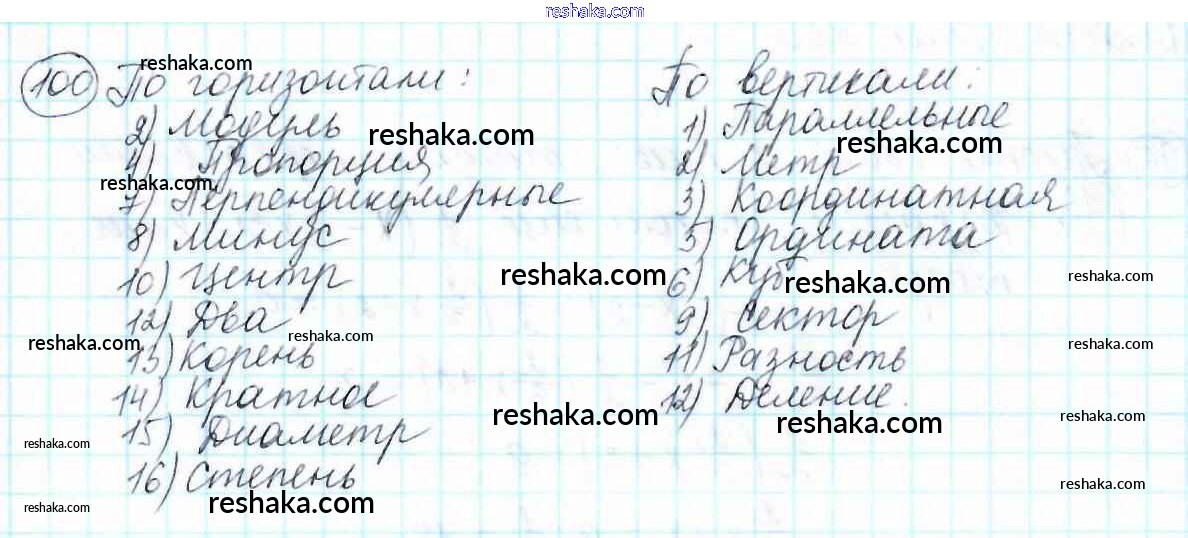 reshaka.com
100 По горизонтали:
2) Модуль
4) Пропорция
7) Перпендикулярные
8) Минус
10) Центр
12) Два
13) Корень
14) Кратное
15) Диаметр
16) Степень
По вертикали:
1) Параллельные
2) Метр
3) Координатная
5) Ордината
6) Куб
9) Сектор
11) Разность
12) Деление.
reshaka.com
reshaka.com
reshaka.com
reshaka.com
reshaka.com
reshaka.com
reshaka.com
reshaka.com
reshaka.com
reshaka.com
reshaka.com
reshaka.com
reshaka.com
reshaka.com
reshaka.com
reshaka.com
reshaka.com